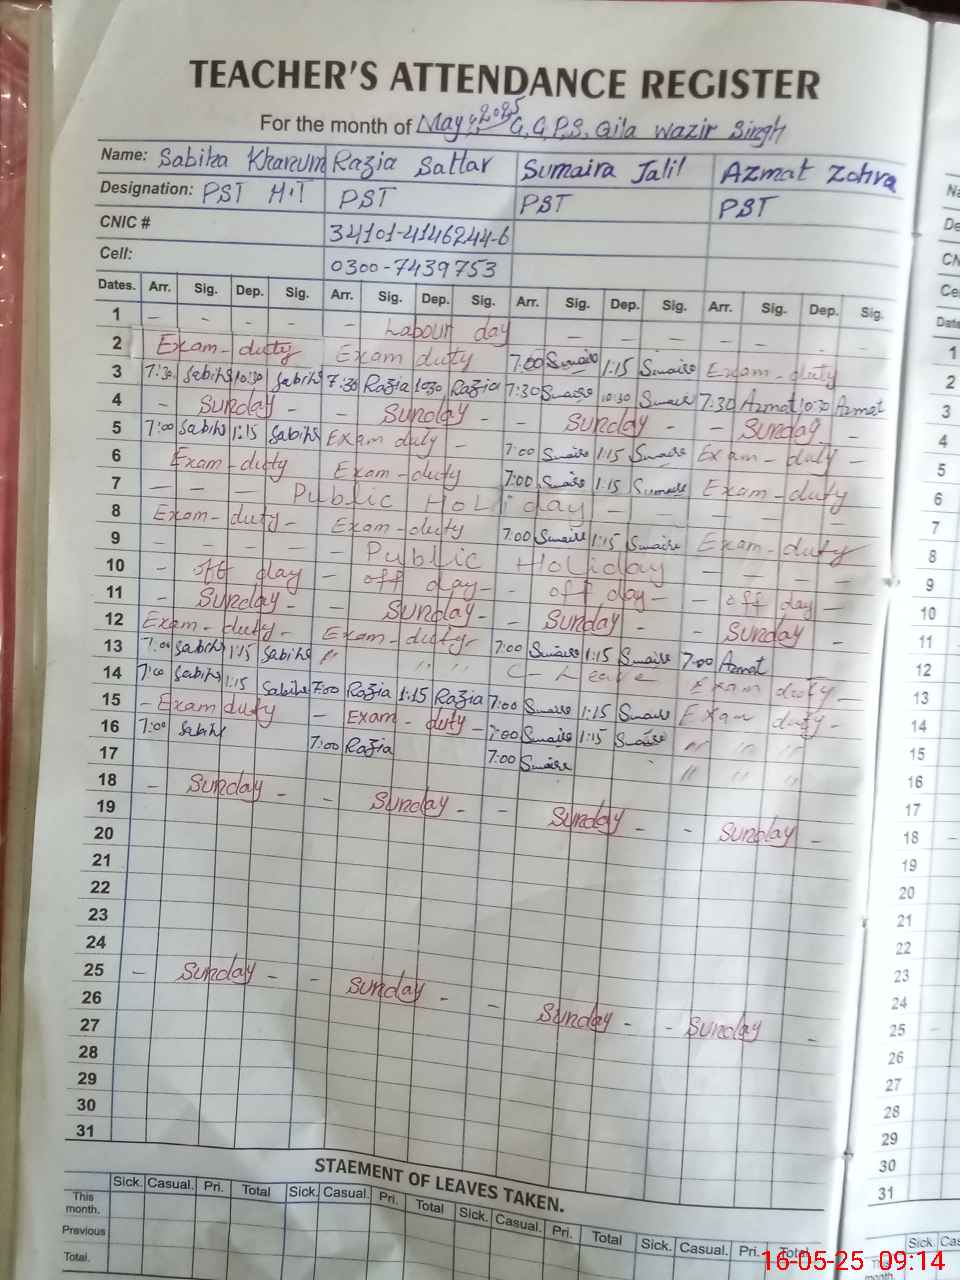 TEACHER'S ATTENDANCE REGISTER
For the month of May, 2025 G.G.P.S. Gila Wazir Singh
Name: Sabiha Khanum Razia Sattar Sumaira Jalil Azmat Zohra
Designation: PST H.T PST PST PST
CNIC # 34101-4146244-6
Cell: 0300-7439753
Dates. Arr. Sig. Dep. Sig. Arr. Sig. Dep. Sig. Arr. Sig. Dep. Sig. Arr. Sig. Dep. Sig.
1 - - - - - Labour day - - - - - - - -
2 Exam-duty Exam duty 7:00 Sumaira 1:15 Sumaira Exam-duty
3 7:30 Sabiha 10:30 Sabiha 7:30 Razia 10:30 Razia 7:30 Sumaira 10:30 Sumaira 7:30 Azmat 10:30 Azmat
4 - Sunday - - Sunday - - Sunday - - Sunday -
5 7:00 Sabiha 1:15 Sabiha Exam duty - 7:00 Sumaira 1:15 Sumaira Exam-duty -
6 Exam-duty Exam-duty 7:00 Sumaira 1:15 Sumaira Exam-duty
7 - - - Public Holiday - - - - -
8 Exam-duty- Exam-duty 7:00 Sumaira 1:15 Sumaira Exam-duty
9 - - - - - Public Holiday - - - -
10 - off day - off day - - off day - - off day -
11 - Sunday - - Sunday - - Sunday - - Sunday -
12 Exam-duty- Exam-duty- 7:00 Sumaira 1:15 Sumaira 7:00 Azmat
13 7:00 Sabiha 1:15 Sabiha " " " C-Leave Exam duty-
14 7:00 Sabiha 1:15 Sabiha 7:00 Razia 1:15 Razia 7:00 Sumaira 1:15 Sumaira Exam duty-
15 - Exam duty - Exam-duty - 7:00 Sumaira 1:15 Sumaira " " "
16 7:00 Sabiha 7:00 Razia 7:00 Sumaira " " "
17
18 - Sunday - - Sunday - - Sunday - - Sunday -
19
20
21
22
23
24
25 - Sunday - - Sunday - - Sunday - - Sunday -
26
27
28
29
30
31
STAEMENT OF LEAVES TAKEN.
Sick. Casual. Pri. Total Sick. Casual. Pri. Total Sick. Casual. Pri. Total Sick. Casual. Pri. Total
This month.
Previous
Total.
Na
De
CN
Ce
Date
1
2
3
4
5
6
7
8
9
10
11
12
13
14
15
16
17
18
19
20
21
22
23
24
25
26
27
28
29
30
31
Sick. Cas
16-05-25 09:14